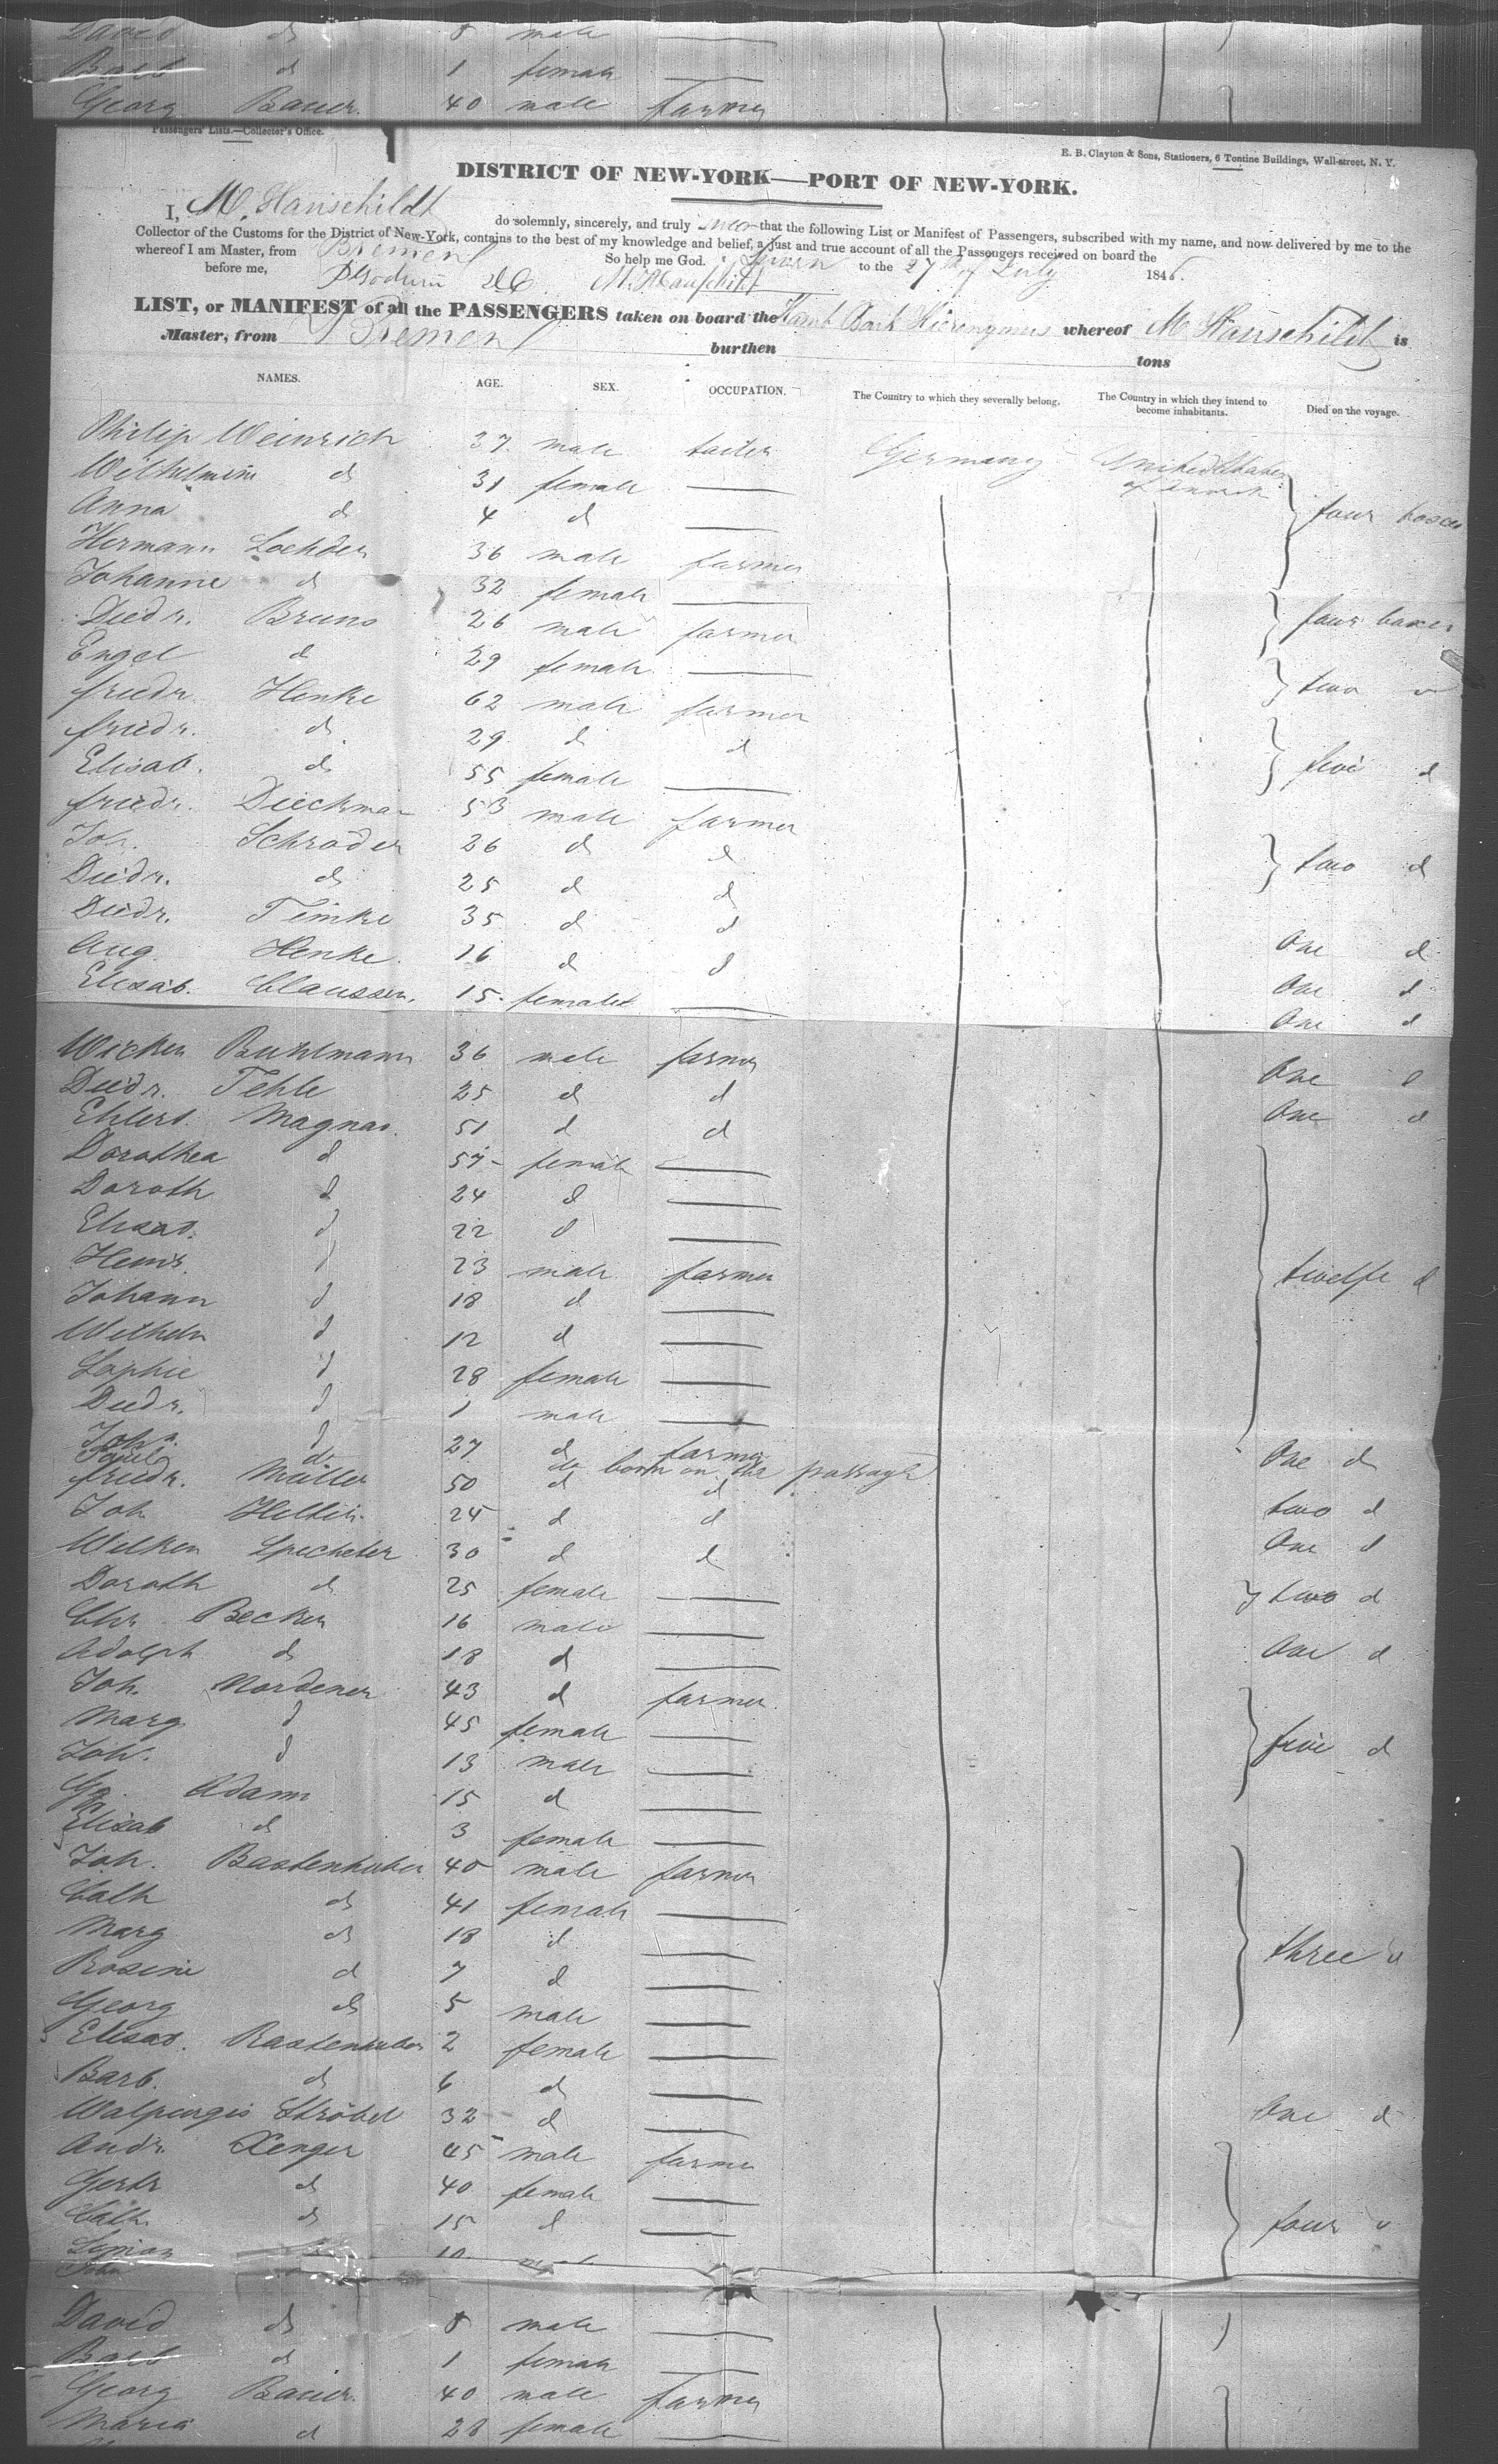 David d 8 male
Barb d 1 female
Georg Bauer. 40 male Farmer
Passengers' Lists.—Collector's Office.
E. B. Clayton & Sons, Stationers, 6 Tontine Buildings, Wall-street, N. Y.
DISTRICT OF NEW-YORK—PORT OF NEW-YORK.
I, M. Hauschildt do solemnly, sincerely, and truly swear that the following List or Manifest of Passengers, subscribed with my name, and now delivered by me to the
Collector of the Customs for the District of New-York, contains to the best of my knowledge and belief, a just and true account of all the Passengers received on board the
whereof I am Master, from Bremen So help me God.
Sworn to the 27th of July 184
before me, M Hauschildt
LIST, or MANIFEST of all the PASSENGERS taken on board the Hamb Bark Hieronymus whereof M Hauschildt is
Master, from Bremen burthen tons
NAMES. AGE. SEX. OCCUPATION. The Country to which they severally belong. The Country in which they intend to become inhabitants. Died on the voyage.
Philip Weinrich 37 male tailer Germany United States of
Wilhelmine d 31 female
Anna d 4 d four boxes
Hermann 36 male farmer
Johanne d 32 female
Diedr. Bruns 26 male farmer four boxes
Engel d 29 female
friedr. Henke 62 male farmer two
friedr. d 29 d d
Elisab. d 55 female five d
friedr. Dieckman 53 male farmer
Joh. Schrader 26 d d
Diedr. d 25 d d two d
Diedr. Timke 35 d d
Aug. Henke. 16 d d One d
Elisab. Claussen. 15 female One d
One d
Wicken Buhlmann 36 male farmer
Diedr. Tehle 25 d d One d
Ehlert. Magnas. 51 d d One d
Dorothea d 57 female
Doroth d 24 d
Elisab. d 22 d
Heinr. d 23 male farmer
Johann d 18 d twelfe d
Wilhelm d 12 d
Sophie d 28 female
Diedr. d 1 male
Joh. d 27 d farmer
d do born on the passage
friedr. Müller 50 d d One d
Joh 24 d d two d
Wilken 30 d d One d
Doroth d 25 female two d
Chr Becker 16 male
Adolph d 18 d One d
Joh. Nordener 43 d farmer.
Marg d 45 female
Joh. d 13 male five d
Adam 15 d
Elisab d 3 female
Joh. Bastenhuber 40 male farmer
Cath d 41 female
Marg d 18 d
Rosine d 7 d three d
Georg d 5 male
Elisab. Bastenhuber 2 female
Barb. d 6 d
Walpurgis Ströbel 32 d One d
Andr. Lenger 45 male farmer
Gertr d 40 female
Cath. d 15 d four
Simon 10
John
David d 8 male
Barb d 1 female
Georg Bauer. 40 male Farmer
Maria d 28 female